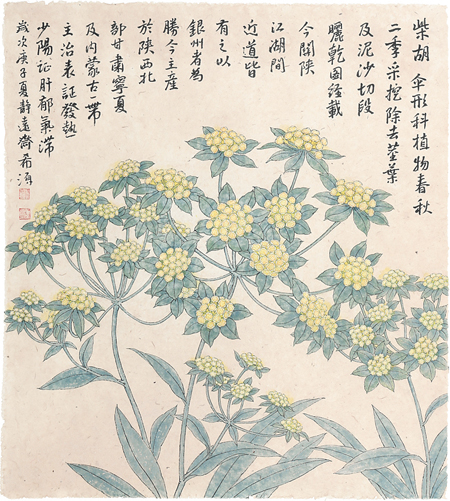 柴胡 伞形科植物春秋
二季采挖除去莖葉
及泥沙切段
曬乾圖经載
今関陕
江湖間
近道皆
有之以
銀州者為
勝今主産
於陕西北
部甘肅寧夏
及内蒙古一帶
主治表証發熱
少陽証肝郁氣滞
歲次庚子夏静遠齋希海